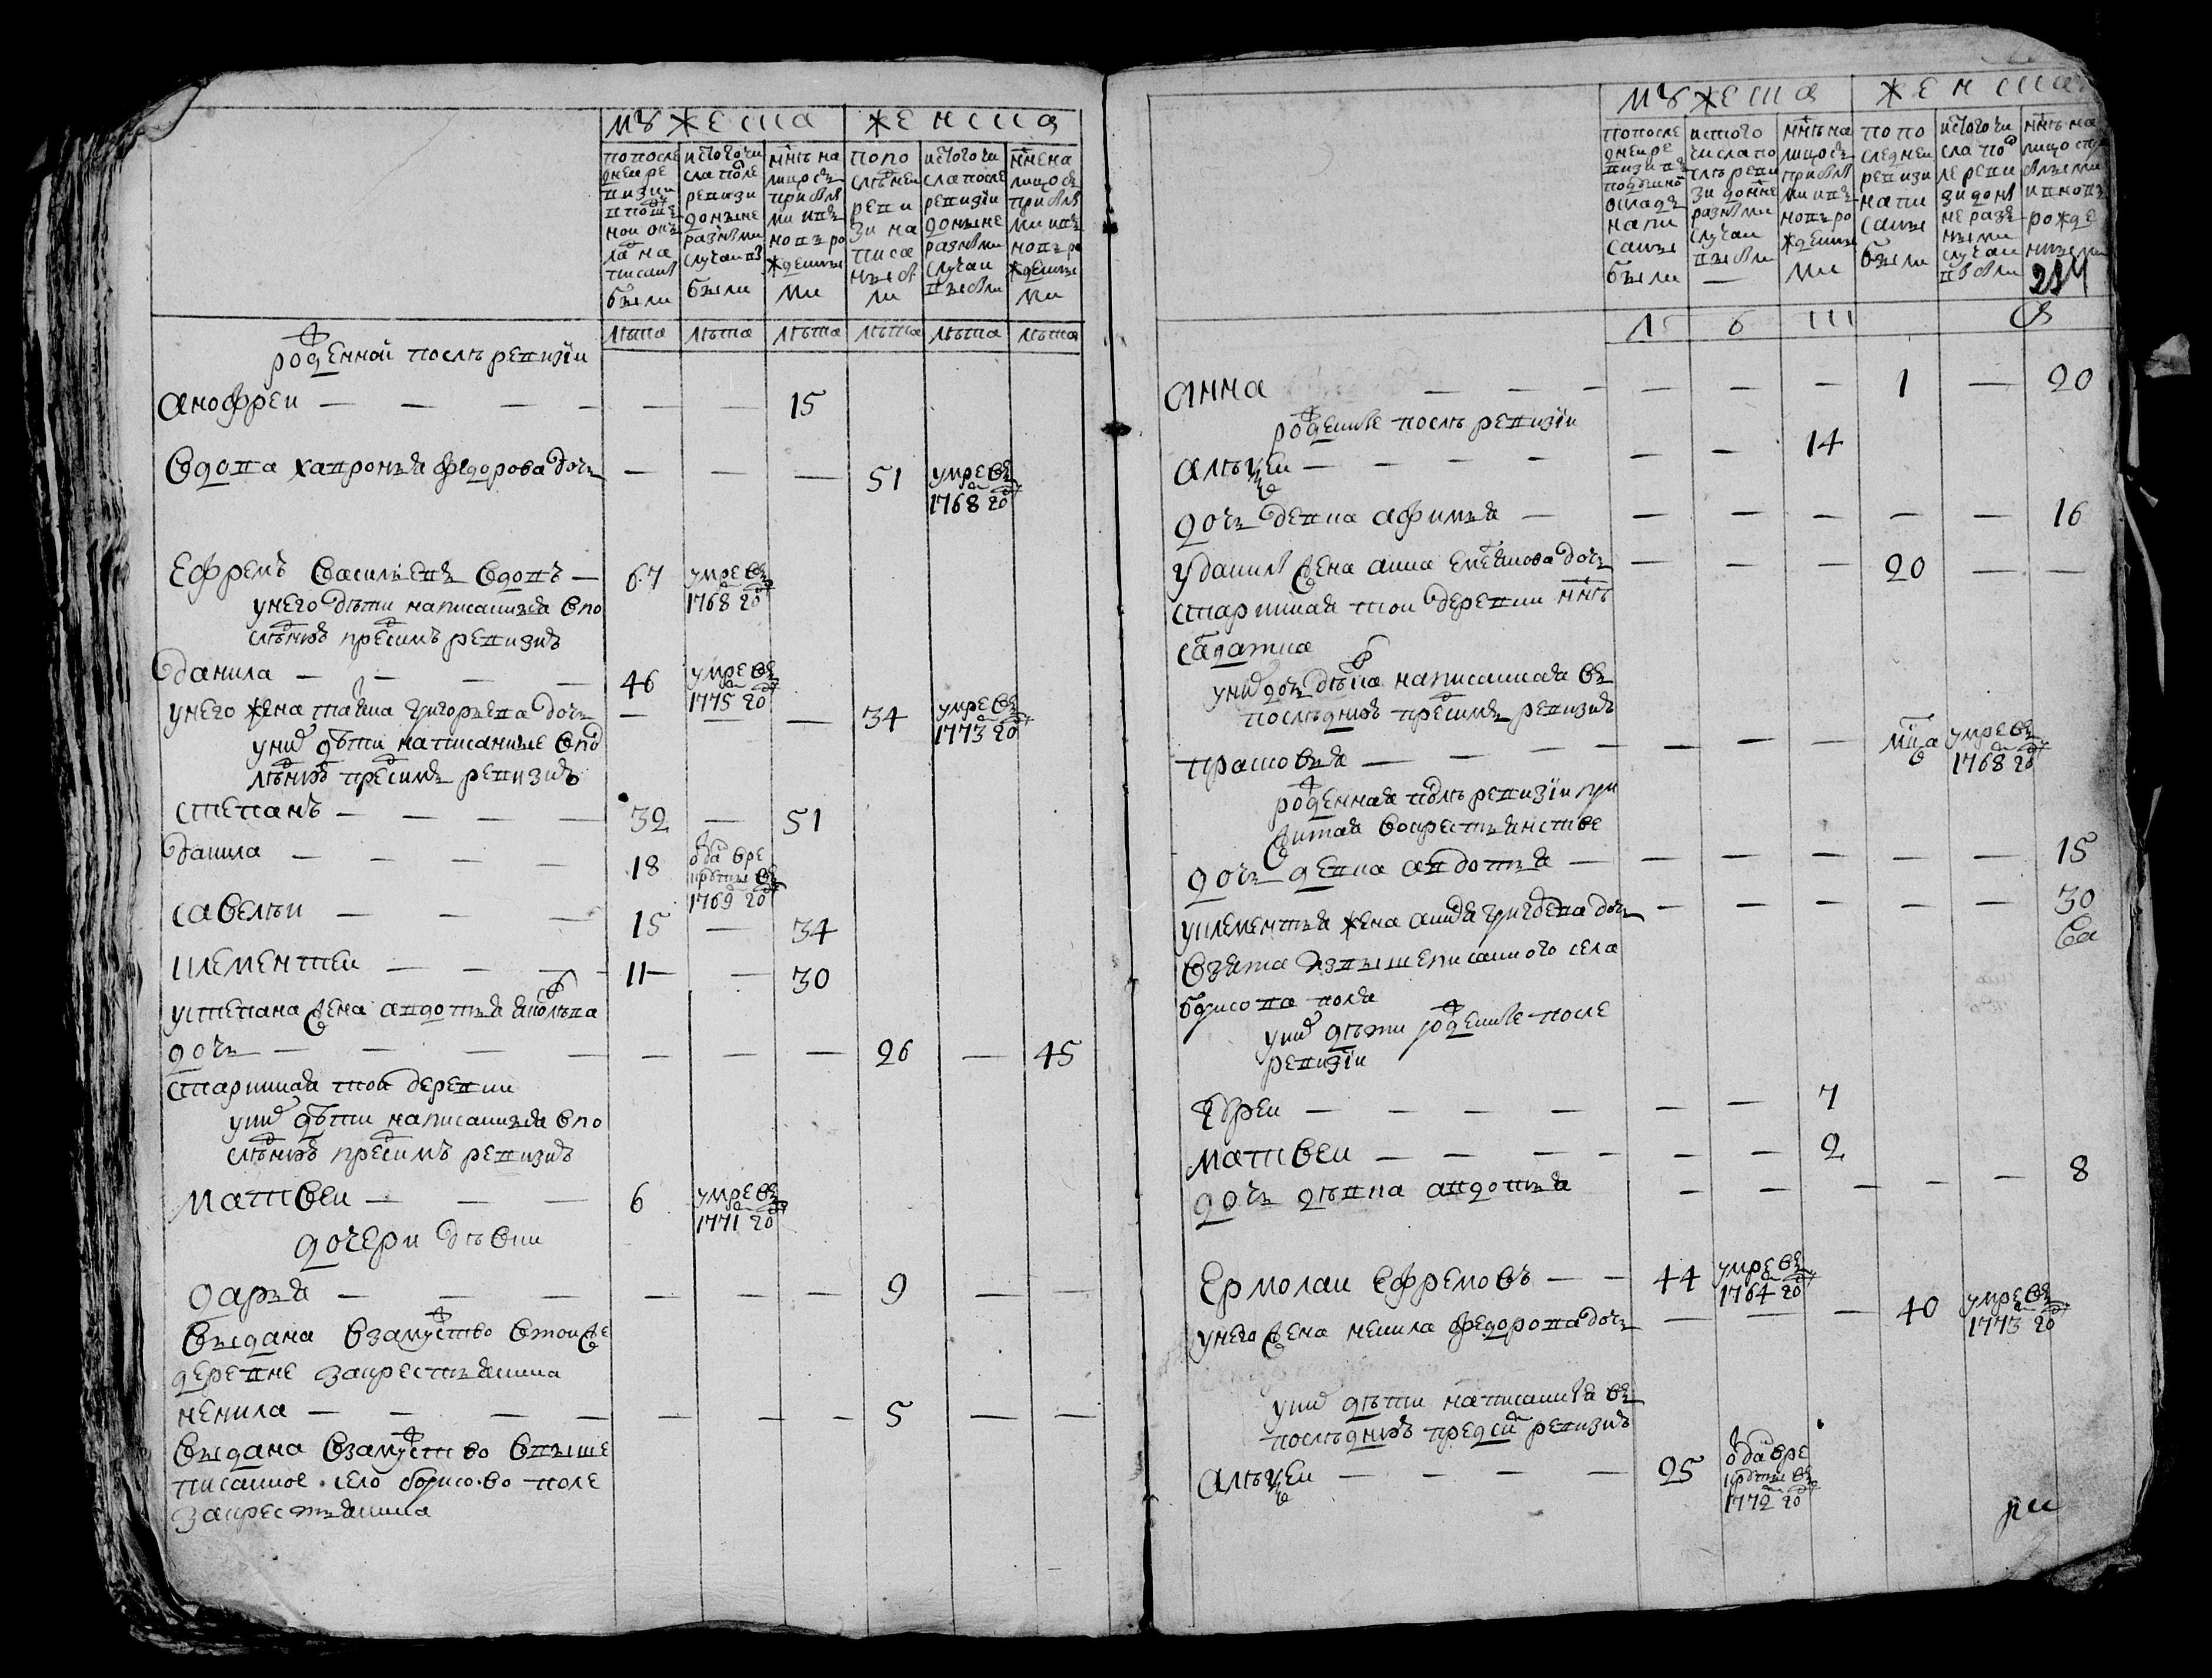 мужеска женска
по после
дней ре
визии
в подуш
ном ок
ладе на
писаны
были
ис того чи
сла после
ревизи
до ныне
разными
случаи вы
были
ныне на
лицо с
прибылы
ми и в
новь ро
жденны
ми
по по
следней
реви
зи на
писа
ны бы
ли
ис того чи
сла после
ревизии
до ныне
разными
случаи
выбыли
ныне на
лицо с
прибылы
ми и в
новь ро
жденны
ми
лета лета лета лета лета лета
рожденной после ревизии
Анофреи — — — — — — 15
Вдова Хавронья Федорова дочь — — — 51 умре в 1768 го
Ефремъ Васильевъ вдовъ — 67 умре в 1768 го
у него дети написанныя в по
следней пред сим ревизиъ
Данила — — — — 46 умре в 1775 го
у него жена Татьяна Григорьева дочь — — — 34 умре в 1773 го
у них дети написанные в по
следней пред сим ревизиъ
Степанъ — — — — 32 — 51
Данила — — — — 18 отдан в рекруты в 1769 го
Савелеи — — — 15 — 34
Клементеи — — — — 11 — 30
у Степана жена Авдотья Яковлева
дочь — — — — — — — 26 — 45
старинная той деревни
у них дети написанныя в по
следней пред сим ревизиъ
Матвеи — — — 6 умре в 1771 го
дочери девки
Дарья — — — — — — 9 — —
выдана в замужство в той же
деревне за крестьянина
Ненила — — — — — — — 5 — —
выдана в замужство в выше
писанное село Борисово поле
за крестьянина
мужеска женска
по после
дней ре
визии в
подушно
окладе
напи
саны
были
ис того
числа по
сле реви
зи до ныне
разными
случаи
выбыли
—
ныне на
лицо с
прибылы
ми и в
новь ро
жденны
ми
по по
следней
ревизи
напи
саны
были
ис того чи
сла по
ле реви
зи до ны
не разн
ными
случаи
выбыли
ныне на
лицо с
былыми
и вновь
рожде
нными
284
л б ш
Анна — — — — — — 1 — 20
рожденные после ревизии
Алексеи — — — — — — 14
дочь девка Афимья — — — — — — — 16
у Данилы жена Анна Емельянова дочь — — — 20 — —
старинная той деревни ныне
салдатка
у них дочь девка написанная в
последней пред сим ревизиъ
Прасковья — — — — — — — умре в 1768 го
рожденная после ревизии при
житая в крестьянстве
дочь девка Авдотья — — — — — — 15
у Клементья жена Анна Григорьева дочь — — — — — 30
взята из вышеписанного села
Борисова поля
у них дети рожденные после
ревизии
— — — — — — 7
Матвеи — — — — — — 2
дочь девка Авдотья — — — — — 8
Ермолаи Ефремовъ — — 44 умре в 1764 го
у него жена Ненила Федорова дочь — — — 40 умре в 1773 го
у них дети написанныя в
последней пред сим ревизиъ
Алексеи — — — — 25 отдан в рекруты в 1772 го